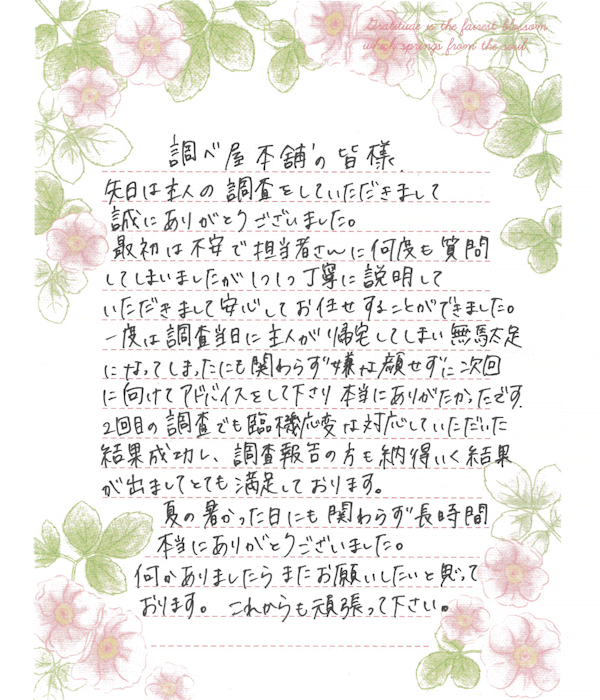 Gratitude is the fairest blossom
which springs from the soul.
調べ屋本舗の皆様
先日は主人の調査をしていただきまして
誠にありがとうございました。
最初は不安で担当者さんに何度も質問
してしまいましたが1つ1つ丁寧に説明して
いただきまして安心してお任せすることができました。
一度は調査当日に主人が帰宅してしまい無駄足
になってしまったにも関わらず嫌な顔せずに次回
に向けてアドバイスをして下さり本当にありがたかったです。
2回目の調査でも臨機応変な対応していただいた
結果成功し、調査報告の方も納得いく結果
が出ましてとても満足しております。
夏の暑かった日にも関わらず長時間
本当にありがとうございました。
何かありましたらまたお願いしたいと思って
おります。これからも頑張って下さい。